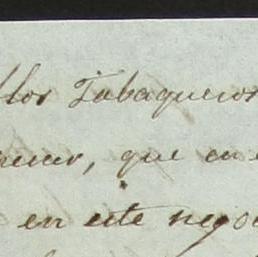 los Tabaqueros
que en
en este nego